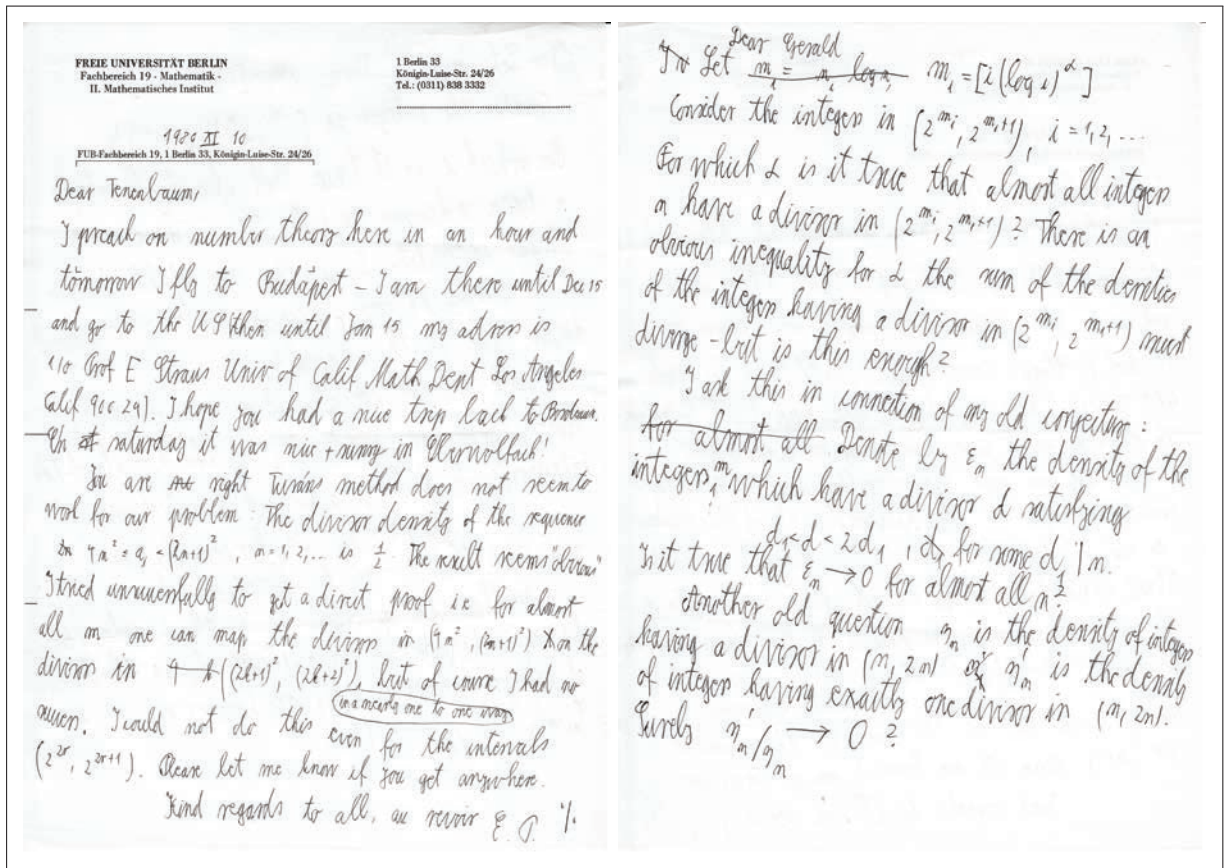 FREIE UNIVERSITÄT BERLIN
Fachbereich 19 - Mathematik -
II. Mathematisches Institut
1 Berlin 33
Königin-Luise-Str. 24/26
Tel.: (0311) 838 3332
1980 XI 10
FUB-Fachbereich 19, 1 Berlin 33, Königin-Luise-Str. 24/26
Dear Tenenbaum,
I preach on number theory here in an hour and
tomorrow I fly to Budapest – I am there until Dec 15
and go to the US (then until Jan 15 my adress is
c/o Prof E Straus Univ of Calif Math Dept Los Angeles
Calif 90024). I hope you had a nice trip back to Bordeaux.
On saturday it was nice + sunny in Oberwolfach!
You are right Turáns method does not seem to
work for our problem: The divisor density of the sequence
4n² < a < (2n+1)², n = 1, 2, ... is 1/2. The result seems "obvious"
I tried unsuccessfully to get a direct proof i.e. for almost
all m one can map the divisors in (4n², (2n+1)²) on the
divisors in ((2k+1)², (2k+2)²), but of course I had no
in a nearly one to one way
success. I could not do this even for the intervals
(2^{2r}, 2^{2r+1}). Please let me know if you get anywhere.
Kind regards to all, au revoir E. P. %
Dear Gerald
Let m_i = n_i log n_i m_i = [i (log i)^α]
Consider the integers in (2^{m_i}, 2^{m_i+1}), i = 1, 2, ...
For which α is it true that almost all integers
n have a divisor in (2^{m_i}, 2^{m_i+1})? There is an
obvious inequality for α the sum of the densities
of the integers having a divisor in (2^{m_i}, 2^{m_i+1}) must
diverge – but is this enough?
I ask this in connection of my old conjecture:
for almost all Denote by ε_n the density of the
integers m which have a divisor d satisfying
d_1 < d < 2d_1, for some d_1 | n.
Is it true that ε_n → 0 for almost all n?
Another old question η_n is the density of integers
having a divisor in (n, 2n) η'_n is the density
of integers having exactly one divisor in (n, 2n).
Surely η'_n / η_n → 0 ?